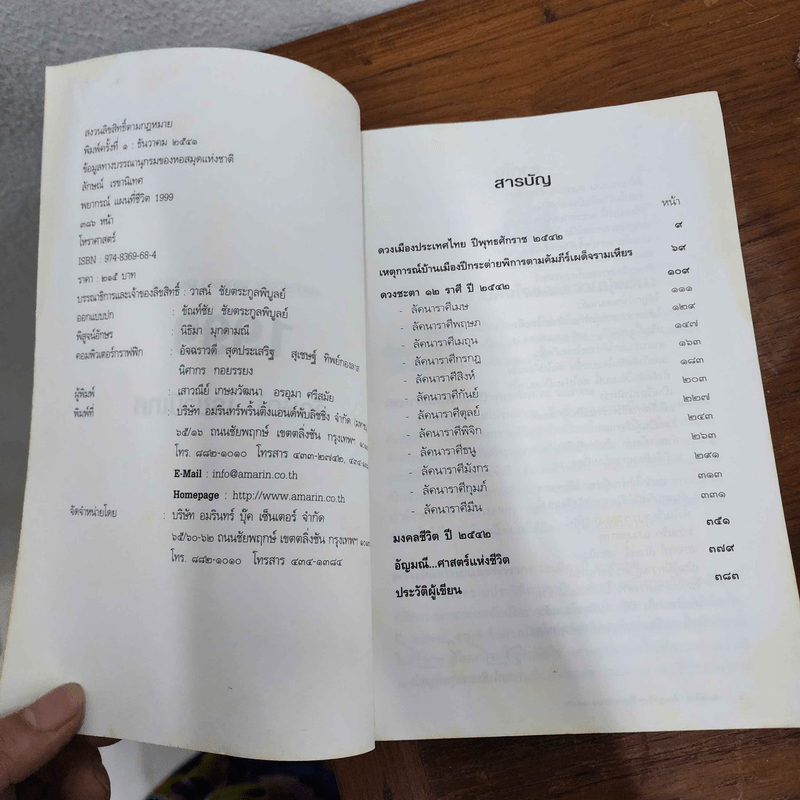 สงวนลิขสิทธิ์ตามกฎหมาย
พิมพ์ครั้งที่ ๑ : ธันวาคม ๒๕๔๑
ข้อมูลทางบรรณานุกรมของหอสมุดแห่งชาติ
ลักษณ์ เรขานิเทศ
พยากรณ์ แผนที่ชีวิต 1999
๓๘๖ หน้า
โหราศาสตร์
ISBN : 974-8369-68-4
ราคา : ๒๑๕ บาท
บรรณาธิการและเจ้าของลิขสิทธิ์ : วาสน์ ชัยตระกูลพิบูลย์
ออกแบบปก : ขัณฑ์ชัย ชัยตระกูลพิบูลย์
พิสูจน์อักษร : นิธิมา มุกดามณี
คอมพิวเตอร์กราฟฟิก : อัจฉราวดี สุดประเสริฐ สุเชษฐ์ ทิพย์ทองลาส
นิศากร กอยรรยง
ผู้พิมพ์ : เสาวณีย์ เกษมวัฒนา อรอุมา ศรีสมัย
พิมพ์ที่ : บริษัท อมรินทร์พริ้นติ้งแอนด์พับลิชชิ่ง จำกัด
๖๕/๑๖ ถนนชัยพฤกษ์ เขตตลิ่งชัน กรุงเทพฯ
โทร. ๘๘๒-๑๐๑๐ โทรสาร ๔๓๓-๒๗๔๒,
E-Mail : info@amarin.co.th
Homepage : http://www.amarin.co.th
จัดจำหน่ายโดย : บริษัท อมรินทร์ บุ๊ค เซ็นเตอร์ จำกัด
๖๕/๖๐-๖๒ ถนนชัยพฤกษ์ เขตตลิ่งชัน กรุงเทพฯ
โทร. ๘๘๒-๑๐๑๐ โทรสาร ๔๓๔-๑๓๘๔
สารบัญ
หน้า
ดวงเมืองประเทศไทย ปีพุทธศักราช ๒๕๔๒ ๙
เหตุการณ์บ้านเมืองปีกระต่ายพิการตามคัมภีร์เผด็จรามเหียร ๖๙
ดวงชะตา ๑๒ ราศี ปี ๒๕๔๒ ๑๐๙
- ลัคนาราศีเมษ ๑๑๑
- ลัคนาราศีพฤษภ ๑๒๙
- ลัคนาราศีเมถุน ๑๔๗
- ลัคนาราศีกรกฎ ๑๖๓
- ลัคนาราศีสิงห์ ๑๘๓
- ลัคนาราศีกันย์ ๒๐๓
- ลัคนาราศีตุลย์ ๒๒๗
- ลัคนาราศีพิจิก ๒๔๓
- ลัคนาราศีธนู ๒๖๓
- ลัคนาราศีมังกร ๒๙๑
- ลัคนาราศีกุมภ์ ๓๑๓
- ลัคนาราศีมีน ๓๓๑
มงคลชีวิต ปี ๒๕๔๒ ๓๕๑
อัญมณี...ศาสตร์แห่งชีวิต ๓๗๙
ประวัติผู้เขียน ๓๘๓